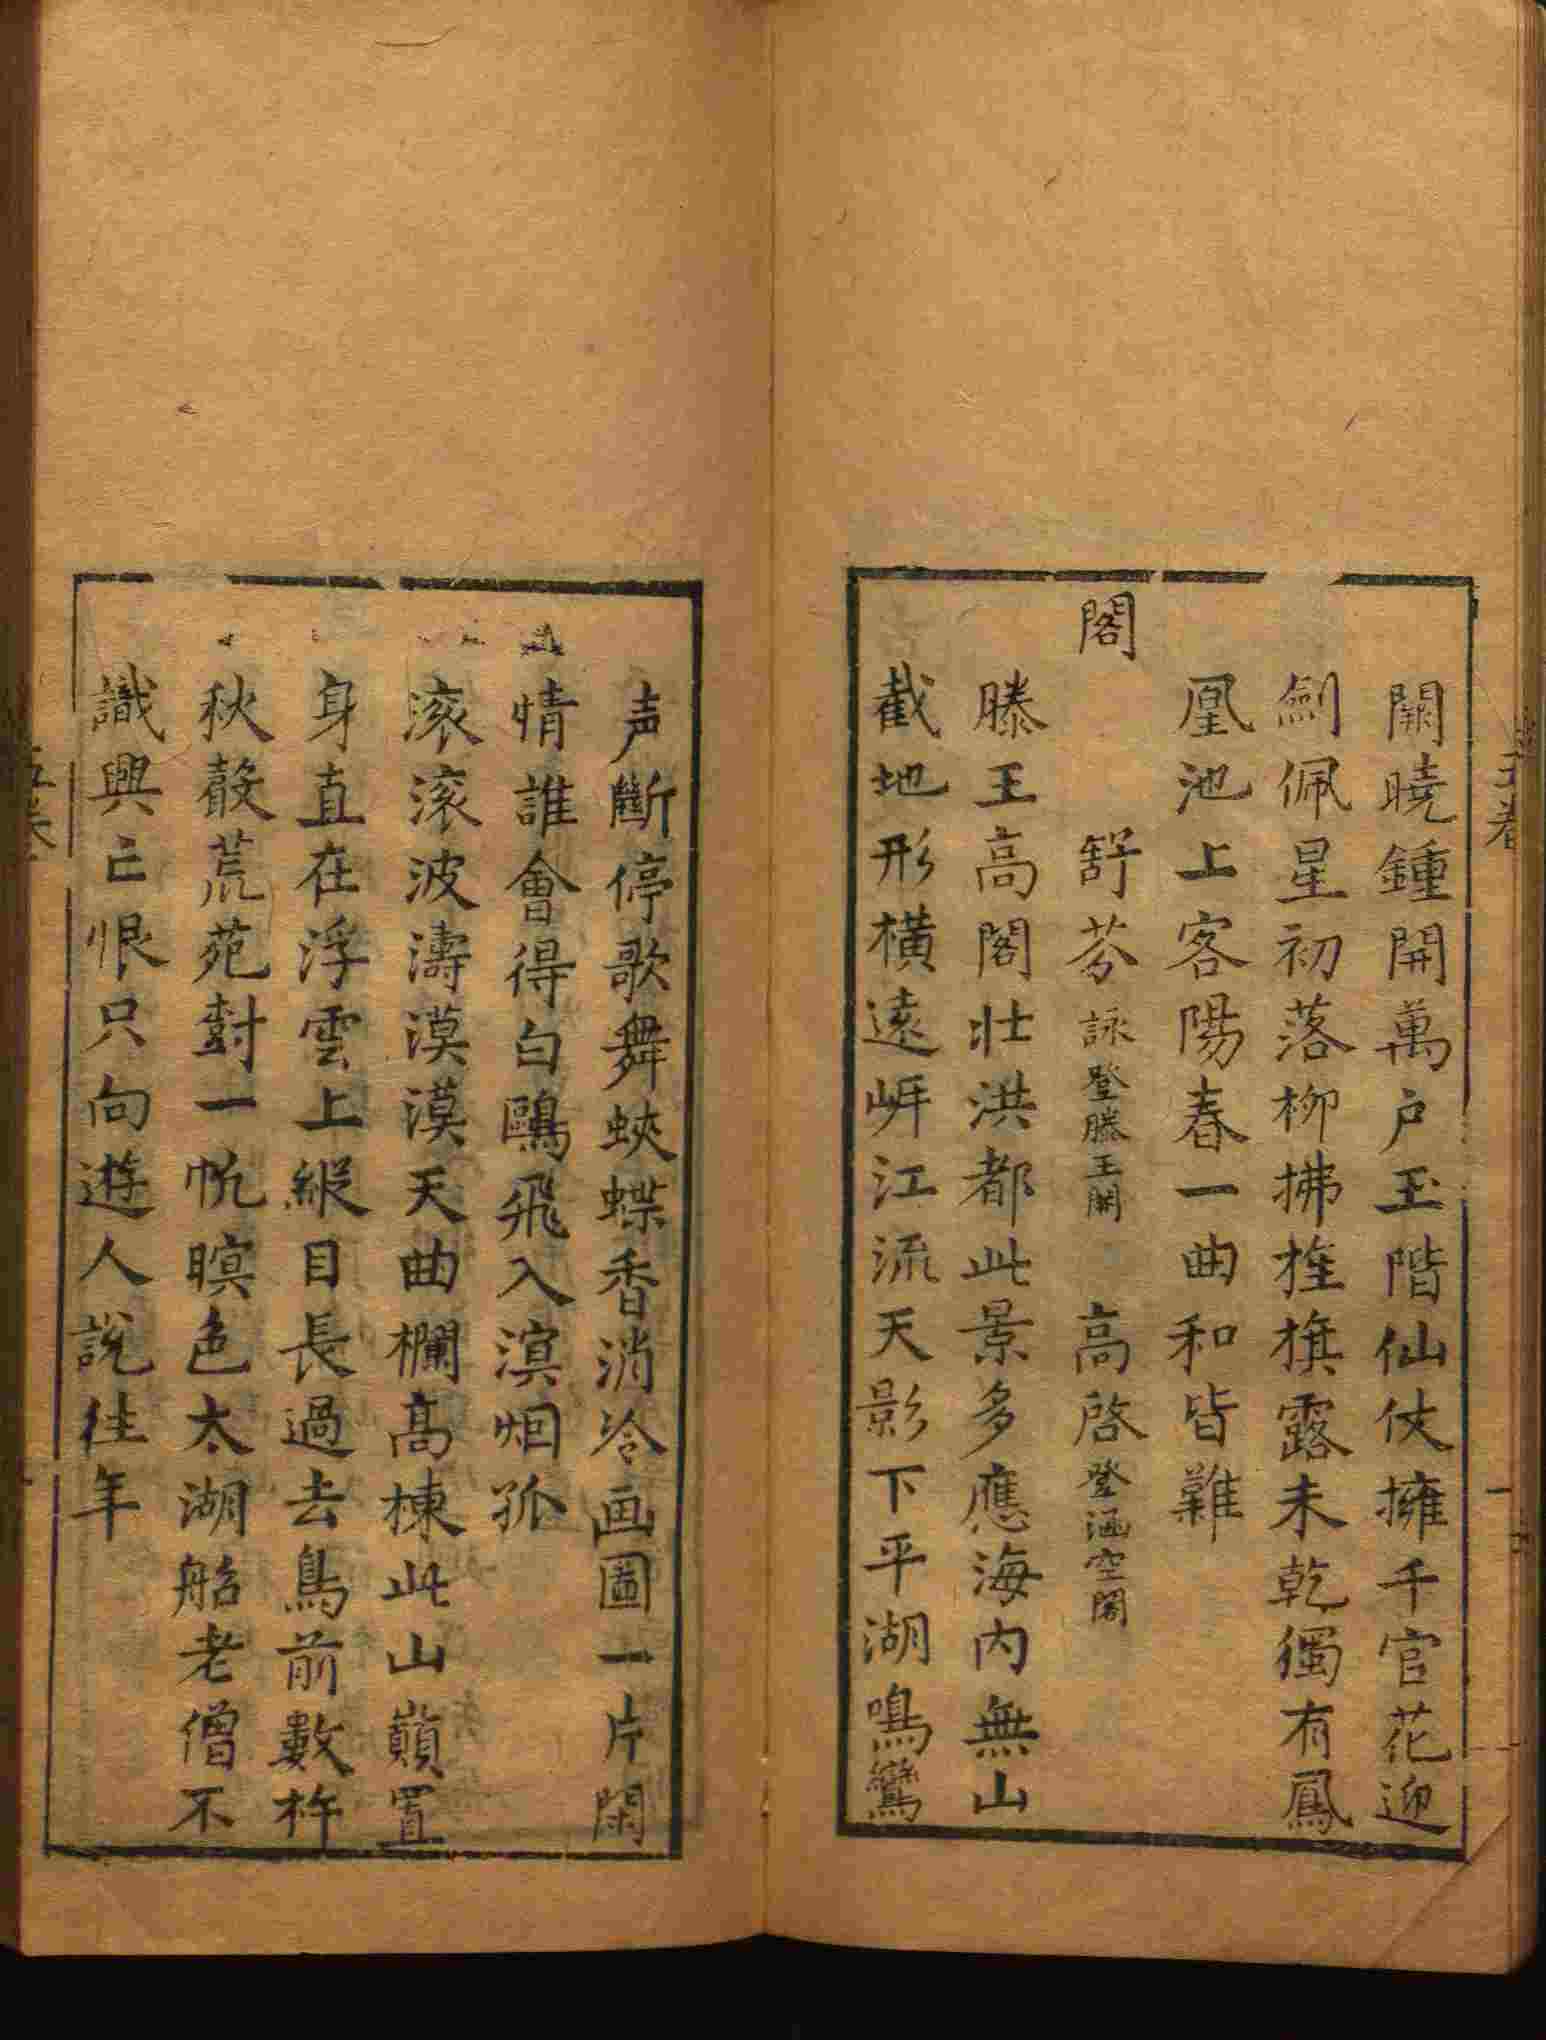 闕曉鍾開萬戶玉階仙仗擁千官花迎
劍佩星初落柳拂旌旗露未乾獨有鳳
凰池上客陽春一曲和皆難
閣 舒芬詠登滕王閣 高啓登涵空閣
滕王高閣壯洪都此景多應海內無山
截地形橫遠岸江流天影下平湖鳴鸞
声斷停歌舞蛺蝶香消冷画圖一片閑
情誰會得白鷗飛入溟烟孤
滚滚波濤漠漠天曲欄高棟此山巔置
身直在浮雲上縱目長過去鳥前數杵
秋聲荒苑對一帆暝色太湖船老僧不
識興亡恨只向遊人說往年
五卷